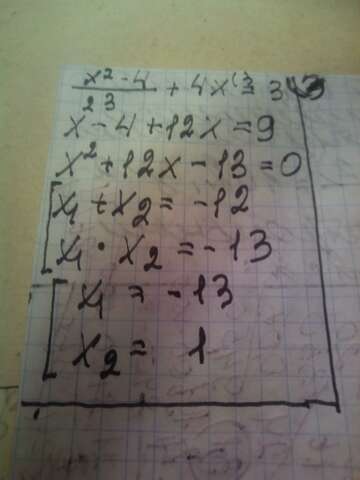 x² - 4 / 3 + 4x = 3
x - 4 + 12x = 9
x² + 12x - 13 = 0
[ x₁ + x₂ = -12
x₁ · x₂ = -13
[ x₁ = -13
x₂ = 1